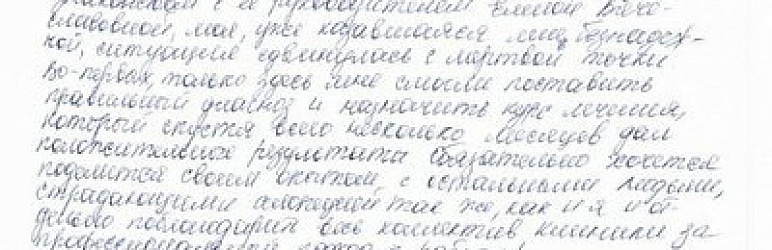 знакомства с её руководителем Еленой Вяче-
славовной, моя, уже казавшаяся мне безнадеж-
ной, ситуация сдвинулась с мертвой точки
Во-первых, только здесь мне смогли поставить
правильный диагноз и назначить курс лечения,
который спустя всего несколько месяцев дал
положительные результаты. Обязательно хочется
поделится своим опытом, с остальными людьми,
страдающими алопецией так же, как и я и от-
дельно поблагодарить весь коллектив клиники за
профессиональный подход к работе!